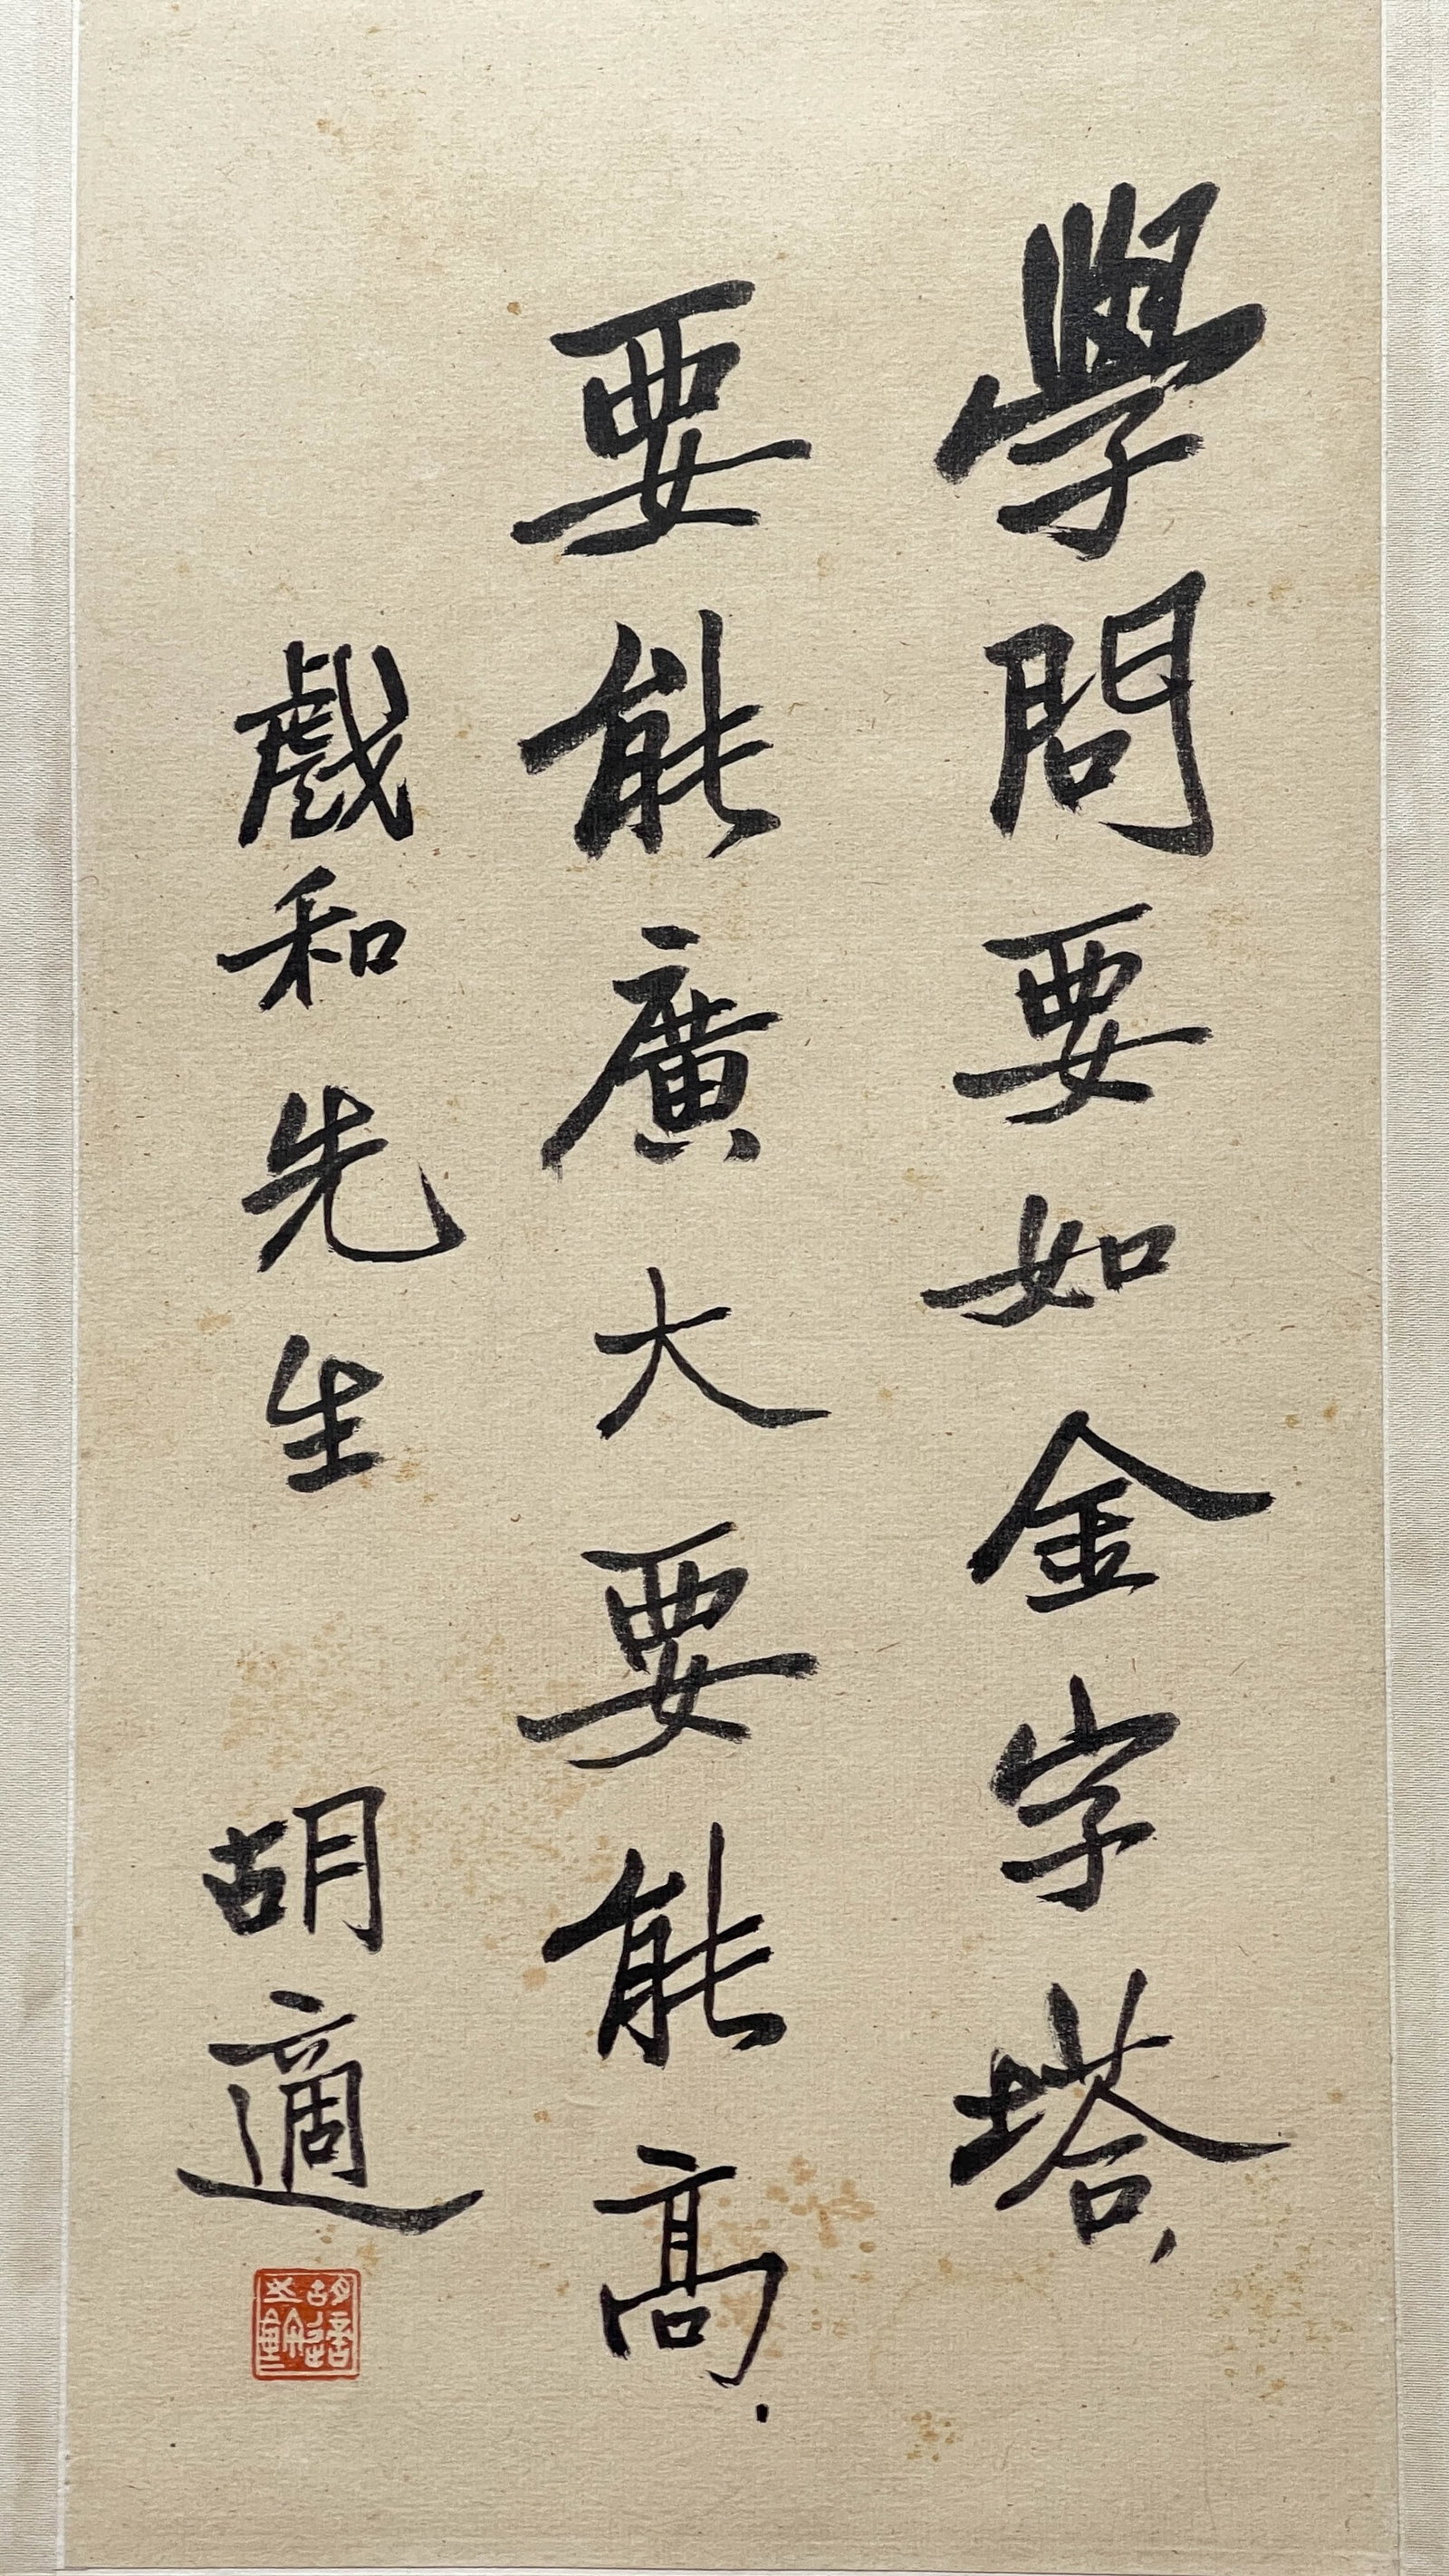 學問要如金字塔，
要能廣大要能高．
戲和先生 胡適
胡適之鉥